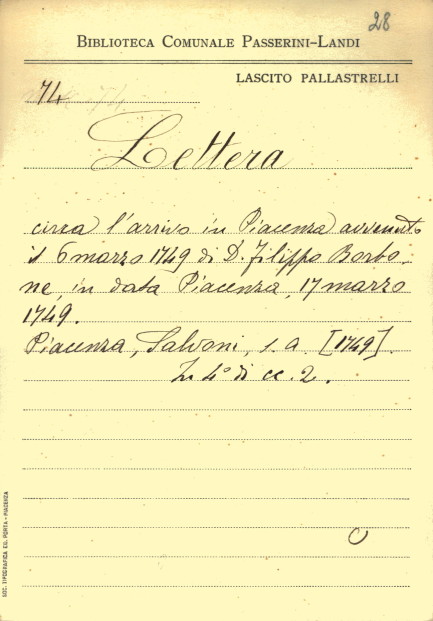 28
BIBLIOTECA COMUNALE PASSERINI-LANDI
LASCITO PALLASTRELLI
74
Lettera
circa l'arrivo in Piacenza avvenuto
il 6 marzo 1749 di D. Filippo Borbo-
ne, in data Piacenza, 17 marzo
1749.
Piacenza, Salvoni, s. a. [1749].
In 4° di cc. 2.
SOC. TIPOGRAFICA ED. PORTA - PIACENZA